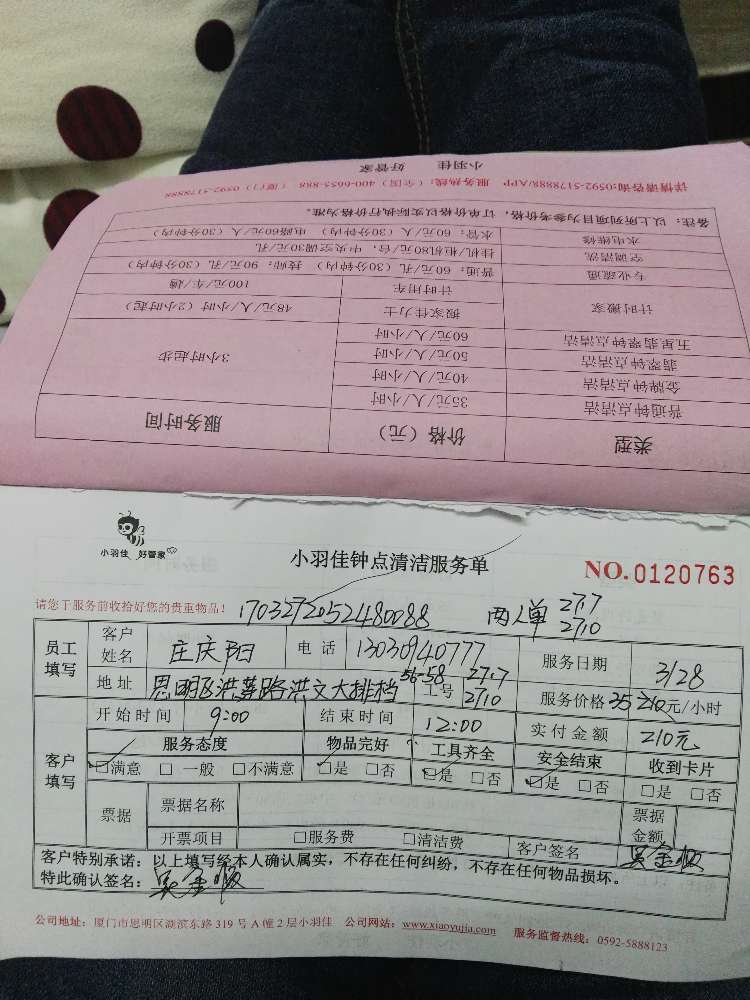 类型 价格（元） 服务时间
普通钟点清洁 35元/人/小时 3小时起步
金牌钟点清洁 40元/人/小时
翡翠钟点清洁 50元/人/小时
五星翡翠钟点清洁 60元/人/小时
计时搬家 搬家佳力士 48元/人/小时（2小时起）
计时用车 100元/车/趟
专业疏通 普通：60元/孔（30分钟内） 技师：90元/孔（30分钟内）
空调清洗 挂机/柜机80元/台，中央空调30元/孔
水电维修 水管：60元/人（30分钟内） 电路60元/人（30分钟内）
备注：以上所列项目为参考价格，订单价格以实际执行价格为准。
详情请咨询:0592-5178888/APP 服务热线：（全国）400-6655-888 （厦门）0592-5178888
小羽佳 好管家
小羽佳 好管家
小羽佳钟点清洁服务单
NO.0120763
请您于服务前收拾好您的贵重物品！
1703272052480088 两人单 2717
2710
员工填写 客户姓名 庄庆阳 电话 13030940777 服务日期 3/28
地址 思明区洪莲路洪文大排档 56-58 工号 2717 2710 服务价格 35 210元/小时
开始时间 9:00 结束时间 12:00 实付金额 210元
客户填写 服务态度 物品完好 工具齐全 安全结束 收到卡片
☑满意 □一般 □不满意 ☑是 □否 ☑是 □否 ☑是 □否 □是 □否
票据 票据名称 票据金额
开票项目 □服务费 □清洁费 客户签名
客户特别承诺：以上填写经本人确认属实，不存在任何纠纷，不存在任何物品损坏。
特此确认签名：
公司地址：厦门市思明区湖滨东路319号A幢2层小羽佳 公司网站：www.xiaoyujia.com 服务监督热线：0592-5888123